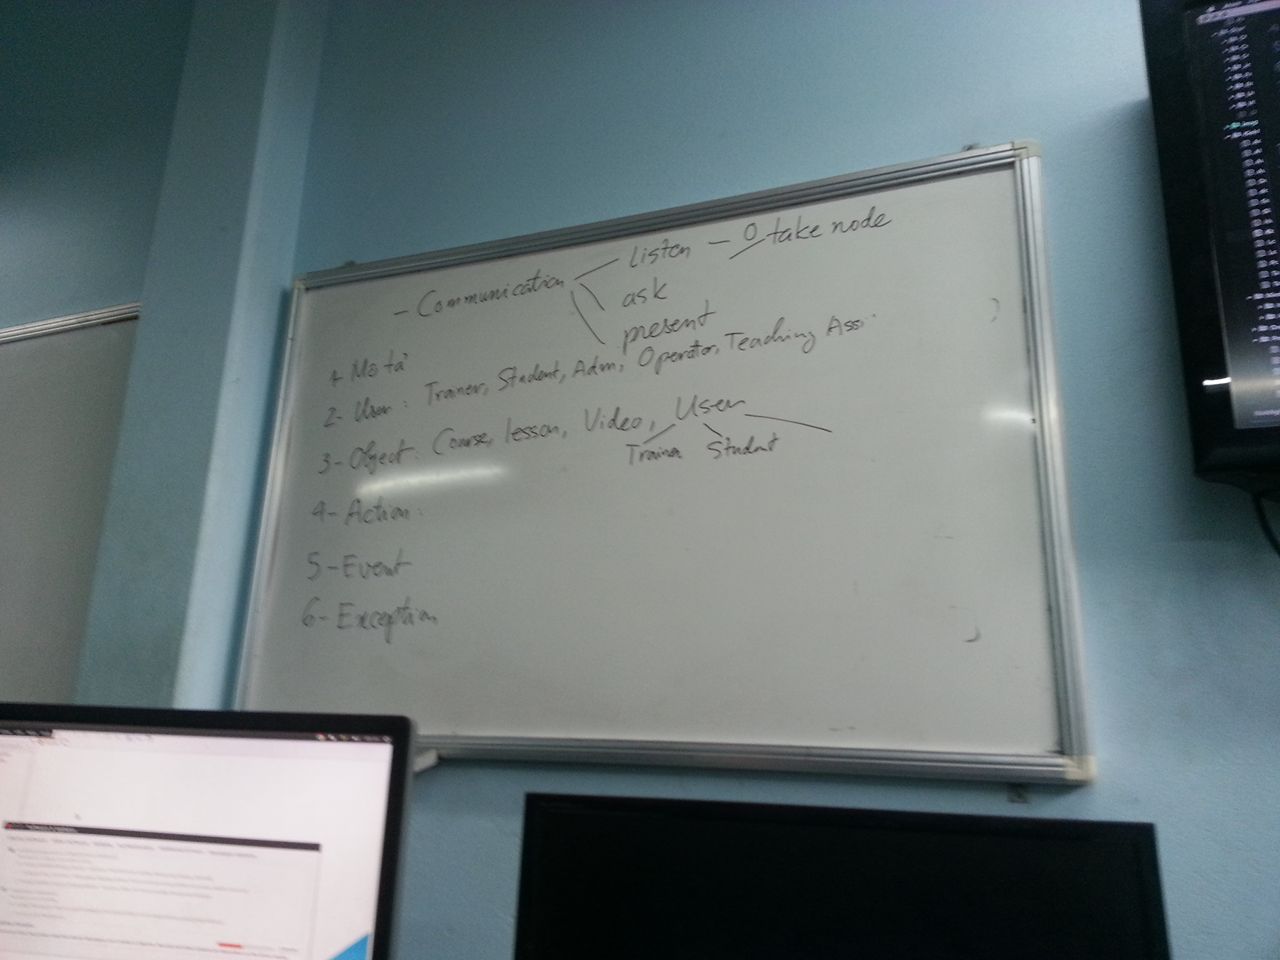 - Communication
Listen - 0 take node
ask
present
1 Mô tả
2- User: Trainer, Student, Adm, Operator, Teaching Assi
3- Object: Course, lesson, Video, User
Trainer Student
4- Action:
5- Event
6- Exception